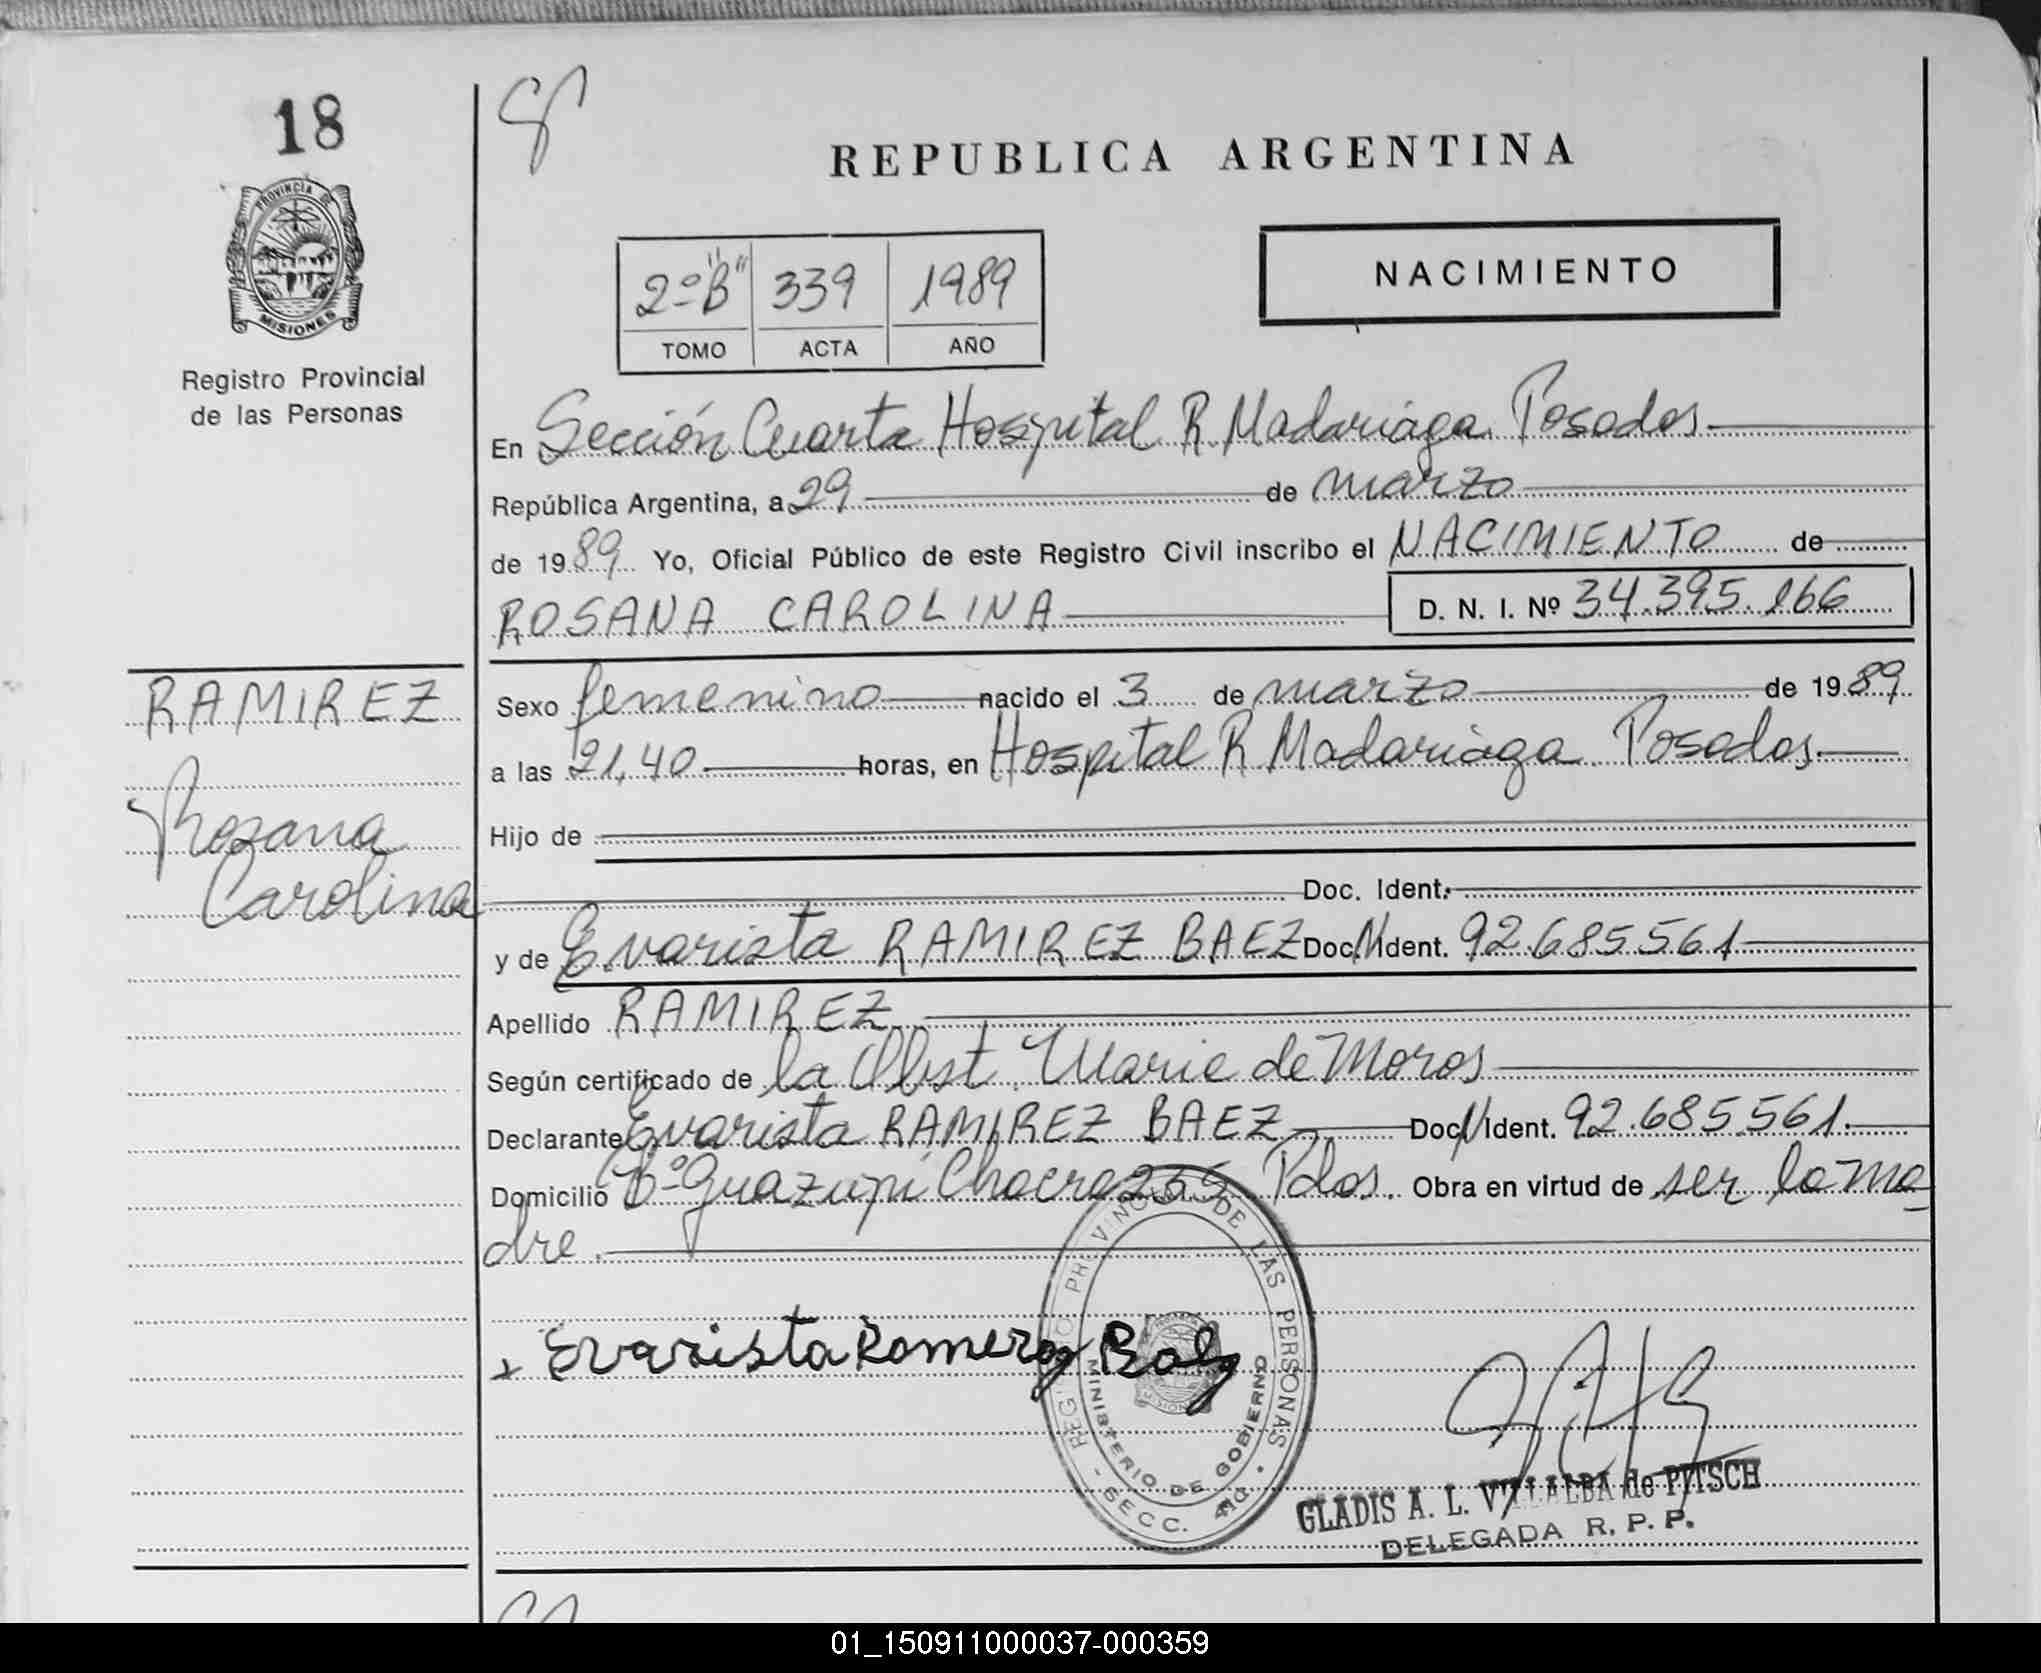 18
REPUBLICA ARGENTINA
PROVINCIA DE
MISIONES
Registro Provincial
de las Personas
2º"B" 339 1989
TOMO ACTA AÑO
NACIMIENTO
En Sección Cuarta Hospital R. Madariaga Posadas
República Argentina, a 29 de marzo
de 1989 Yo, Oficial Público de este Registro Civil inscribo el NACIMIENTO de
ROSANA CAROLINA D. N. I. Nº 34.395.166
RAMIREZ
Rosana
Carolina
Sexo femenino nacido el 3 de marzo de 1989
a las 21,40 horas, en Hospital R Madariaga Posadas
Hijo de
Doc. Ident.
y de Evarista RAMIREZ BAEZ Doc. Ident. 92.685.561
Apellido RAMIREZ
Según certificado de la Obst. Marie de Moros
Declarante Evarista RAMIREZ BAEZ Doc. Ident. 92.685.561.
Domicilio Bº Guazupi Chacra 239 Pdas. Obra en virtud de ser la ma
dre.
Evarista Romero
REGISTRO PROVINCIAL DE LAS PERSONAS
MINISTERIO DE GOBIERNO
SECC. 4ta.
GLADIS A. L. VILLALBA de PITSCH
DELEGADA R. P. P.
01_150911000037-000359